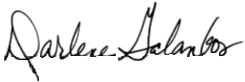 Darlene Galambos